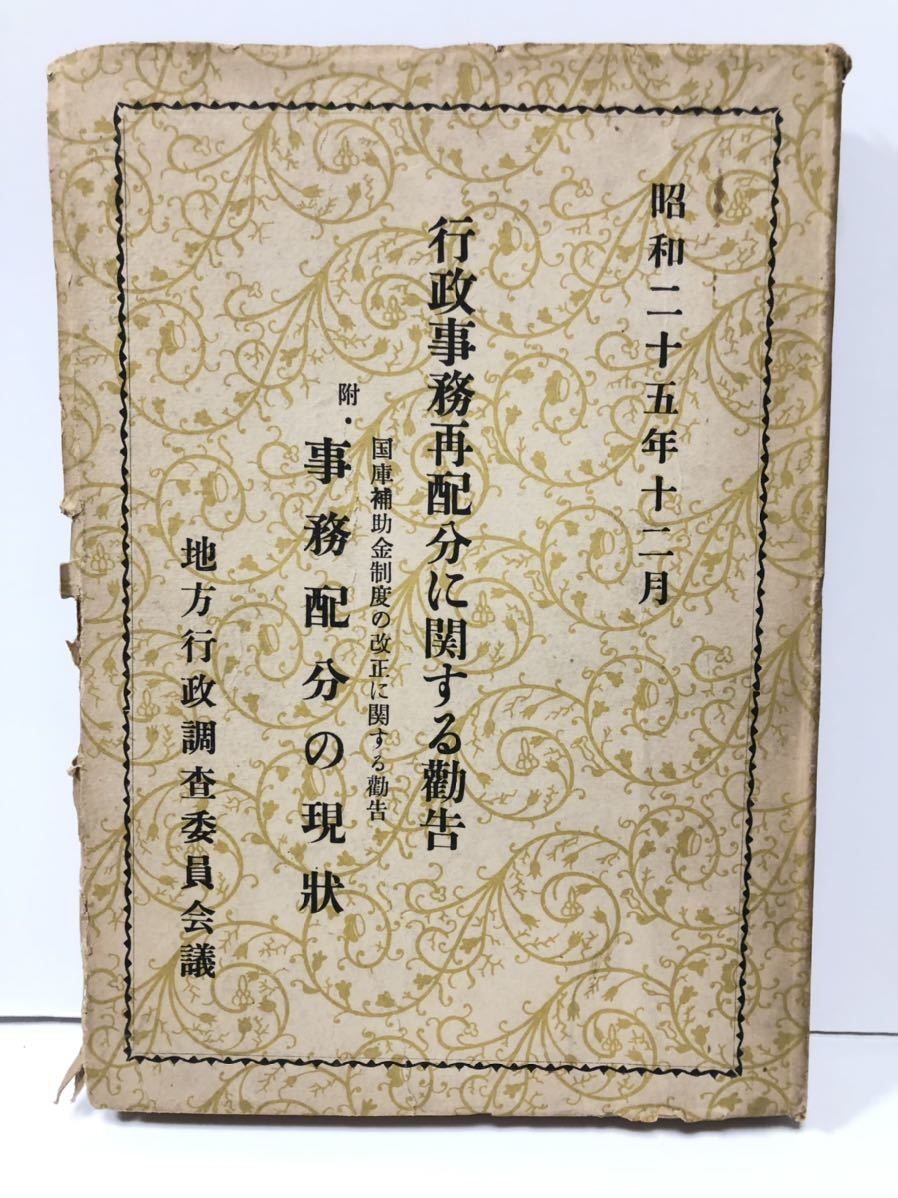 昭和二十五年十二月
行政事務再配分に関する勸告
国庫補助金制度の改正に関する勸告
附・事務配分の現狀
地方行政調査委員会議